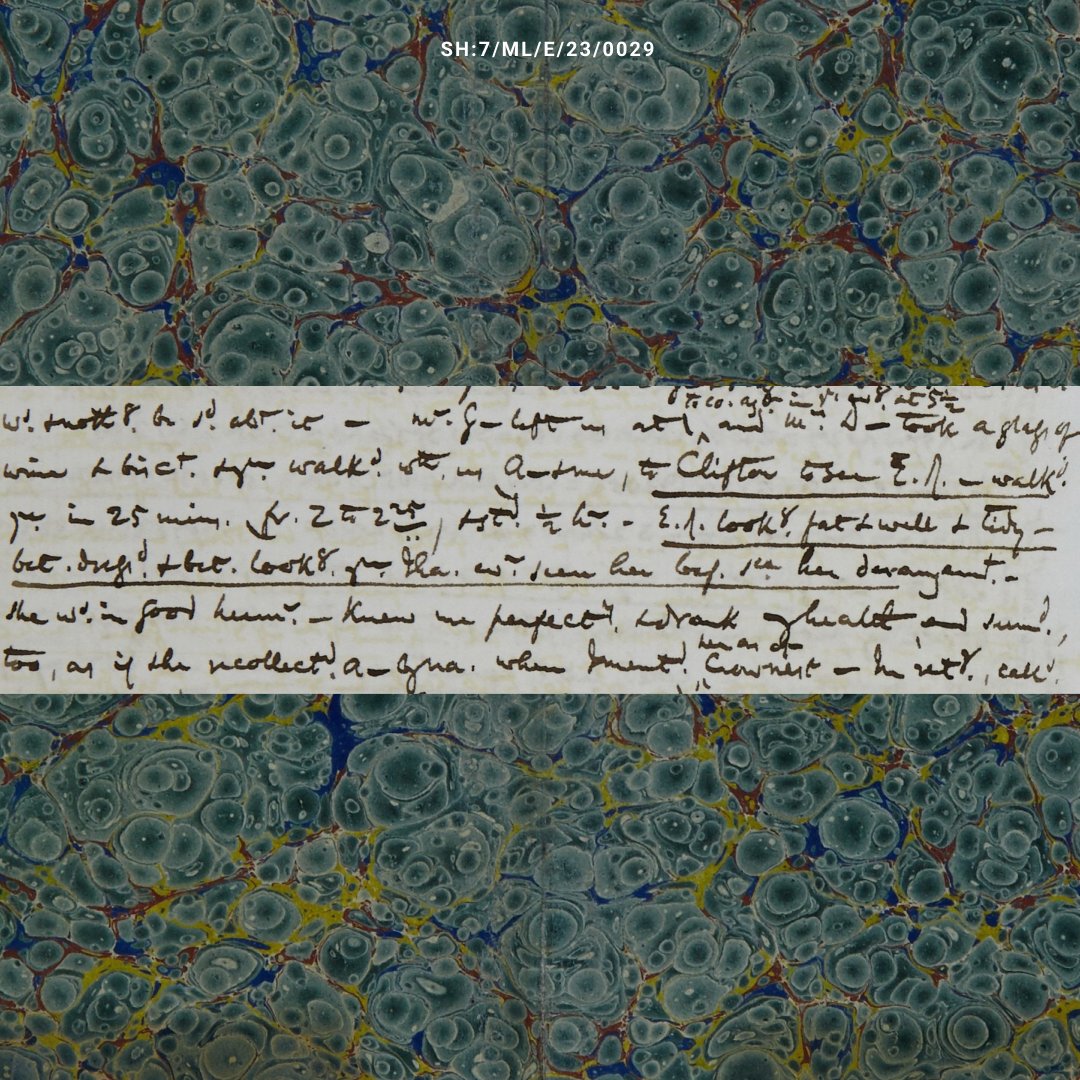 SH:7/ML/E/23/0029
to co. ag.n in at 5½
wd. & noth.g br. sd. abt. it – Mr. G– left us at 1, and Mr. D– took a glass of
wine & bisct. & yn. walkd. wth. us A– & me, to Clifton to see E.R. – walkd.
yr. in 25 mins. fr. 2 to 2 25, & st.d ½ hr. – E.R. look.g fat & well & tidy –
bet. dressd. & bet. look.g yn. I ha. evr. seen her bef. sin. her derangemt. –
she ws. in good humr. – knew me perfectl. & drank my health and seemd.,
too, as if she recollectd. A– when I mentd. her as of Crownest – In retg., calld.